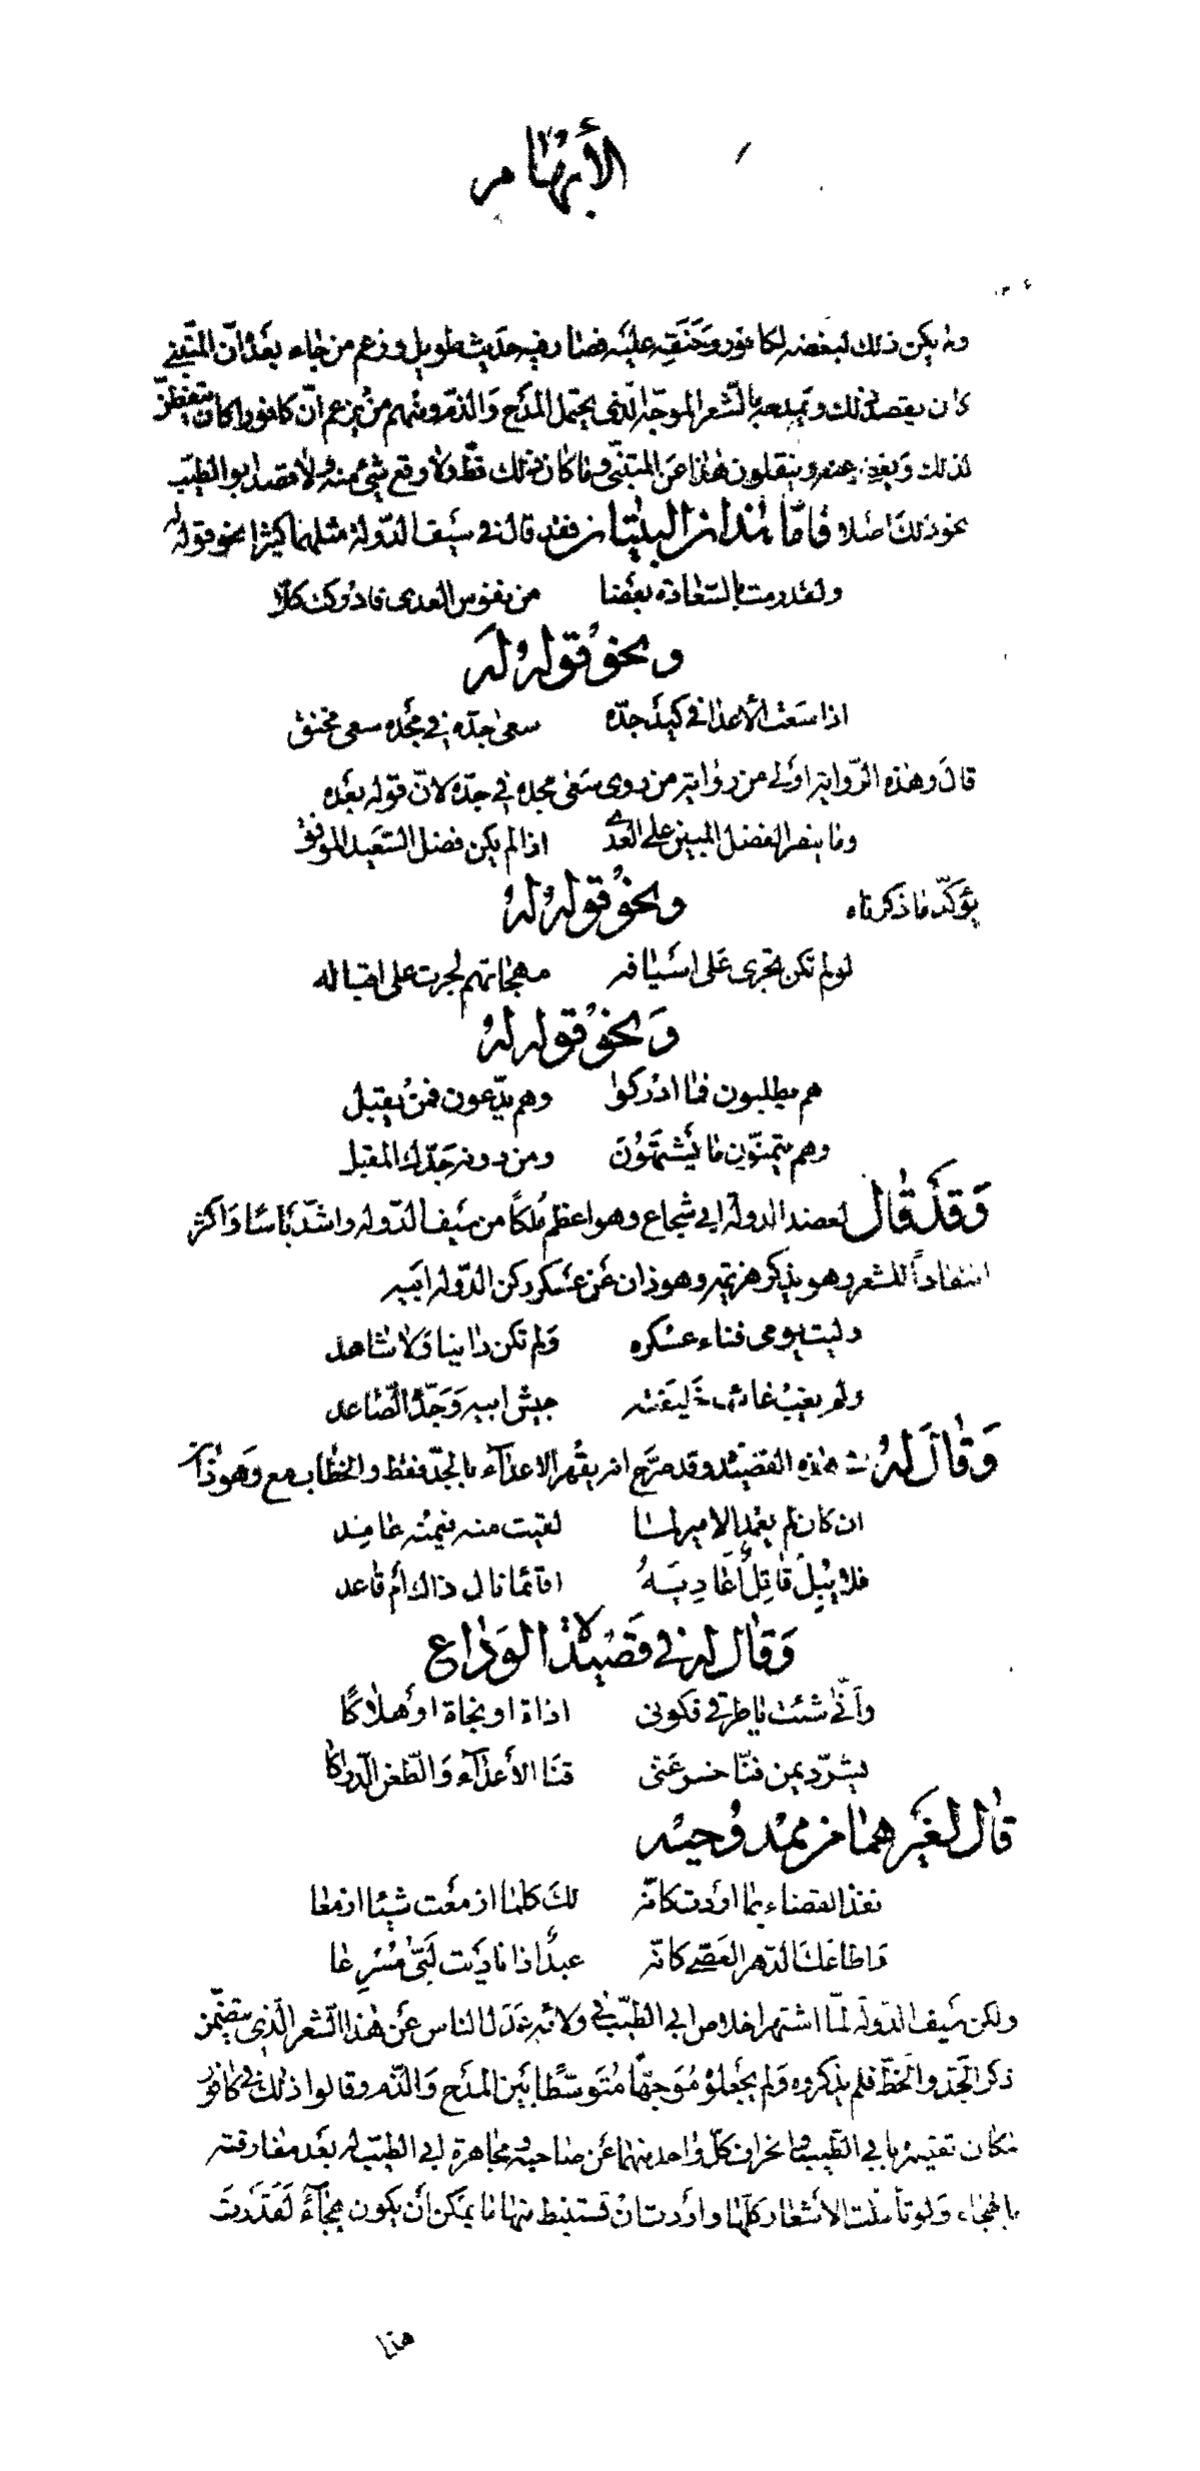 الأبهام
ولم يكن ذلك لبغضه لكافور وحنقه عليه فصار فيه حديث طويل وزعم من جاء بعد أن المتنبي
كان يقصد ذلك ويمدحه بالشعر الموجه الذي يحتمل المدح والذم ومنهم من يزعم أن كافورا كان يتفطن
لذلك ويغضي عنه وينقلون هذا عن المتنبي وما كان ذلك قط ولا وقع شيء منه ولا قصد ابو الطيب
نحو ذلك اصلا فأما هذان البيتان فقد قال في سيف الدولة مثلهما كثيرا نحو قوله له
ولقد رمت بالسعادة بعضا من نفوس العدى فادركت كلا
ونحو قوله له
اذا سعت الأعدا في كيد جده سعى جده في مجده سعى محنق
قال وهذه الرواية اولى من رواية من روى سعى مجده في جده لان قوله بعده
وما ينصر الفضل المبين على العدى اذا لم يكن فضل السعيد الموفق
يؤكد ما ذكرناه ونحو قوله له
لو لم تكن تجرى على اسيافه مهجاتهم لجرت على اقباله
ونحو قوله له
هم يطلبون فما ادركوا وهم يدعون فمن يقبل
وهم يتمنون ما يشتهون ومن دونه جدك المقبل
وقد قال لعضد الدولة ابي شجاع وهو اعظم ملكا من سيف الدولة واشد بأسا واكثر
انتقادا للشعر وهو يذكر هزيمة وهوذان عن عسكر ركن الدولة ابيه
وليت يومى فناء عسكره ولم تكن دانيا ولا شاهد
ولم يغب غائب خليفته جيش ابيه وجده الصاعد
وقال له في هذه القصيدة وقد صرح انه يقهر الاعداء بالجد فقط والخطاب مع وهوذان
ان كان لم يعمد الامير لما لقيت منه فيمنه عامد
فلا يبل قاتل أعاديه اقائما نال ذاك أم قاعد
وقال له في قصيدة الوداع
وأنى شئت يا طرقي فكونى اذاة او نجاة او هلاكا
يشرد يمن فناخسر عنى قنا الأعداء والطعن الدراكا
قال لغيرهما من ممدوحيه
نفذ القضاء بما اردت كانه لك كلما ازمعت شيئا ازمعا
واطاعك الدهر العصي كانه عبد اذا ناديت لبى مسرعا
ولكن سيف الدولة لما اشتهر اخلاص ابي الطيب في ولائه عدل الناس عن هذا الشعر الذي يتضمن
ذكر الجد والحظ فلم يذكروه ولم يجعلوه موجها متوسطا بين المدح والذم وقالوا ذلك في كافور
لمكان تغيره بابي الطيب وانحراف كل واحد منهما عن صاحبه ومجاهرة ابي الطيب له بعد مفارقته
بالهجاء ولو تأملت الاشعار كلها واردت ان تستنبط منها ما يمكن أن يكون هجاء لقدرت
هذا